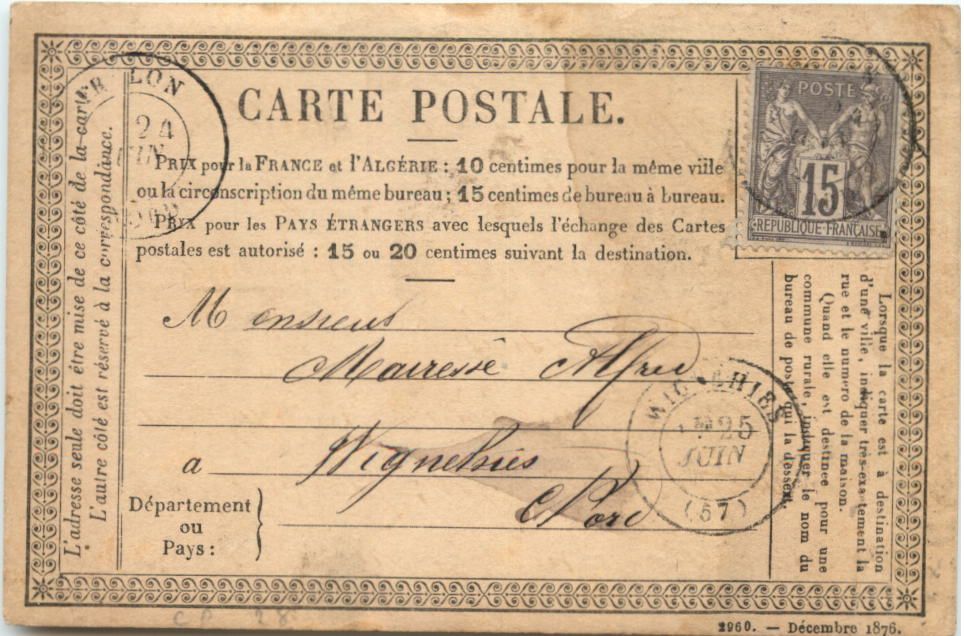 CARTE POSTALE.
PRIX pour la FRANCE et l'ALGÉRIE : 10 centimes pour la même ville
ou la circonscription du même bureau ; 15 centimes de bureau à bureau.
PRIX pour les PAYS ÉTRANGERS avec lesquels l'échange des Cartes
postales est autorisé : 15 ou 20 centimes suivant la destination.
L'adresse seule doit être mise de ce côté de la carte.
L'autre côté est réservé à la correspondance.
LON
24
POSTE
15
REPUBLIQUE FRANÇAISE
Monsieur
Mairesse Alfred
a Wignehies
Nord
Département
ou
Pays :
WIGNEHIES
25
JUIN
(57)
Lorsque la carte est à destination
d'une ville, indiquer très-exactement la
rue et le numéro de la maison.
Quand elle est destinée pour une
commune rurale, indiquer le nom du
bureau de poste qui la dessert.
2960. — Décembre 1876.